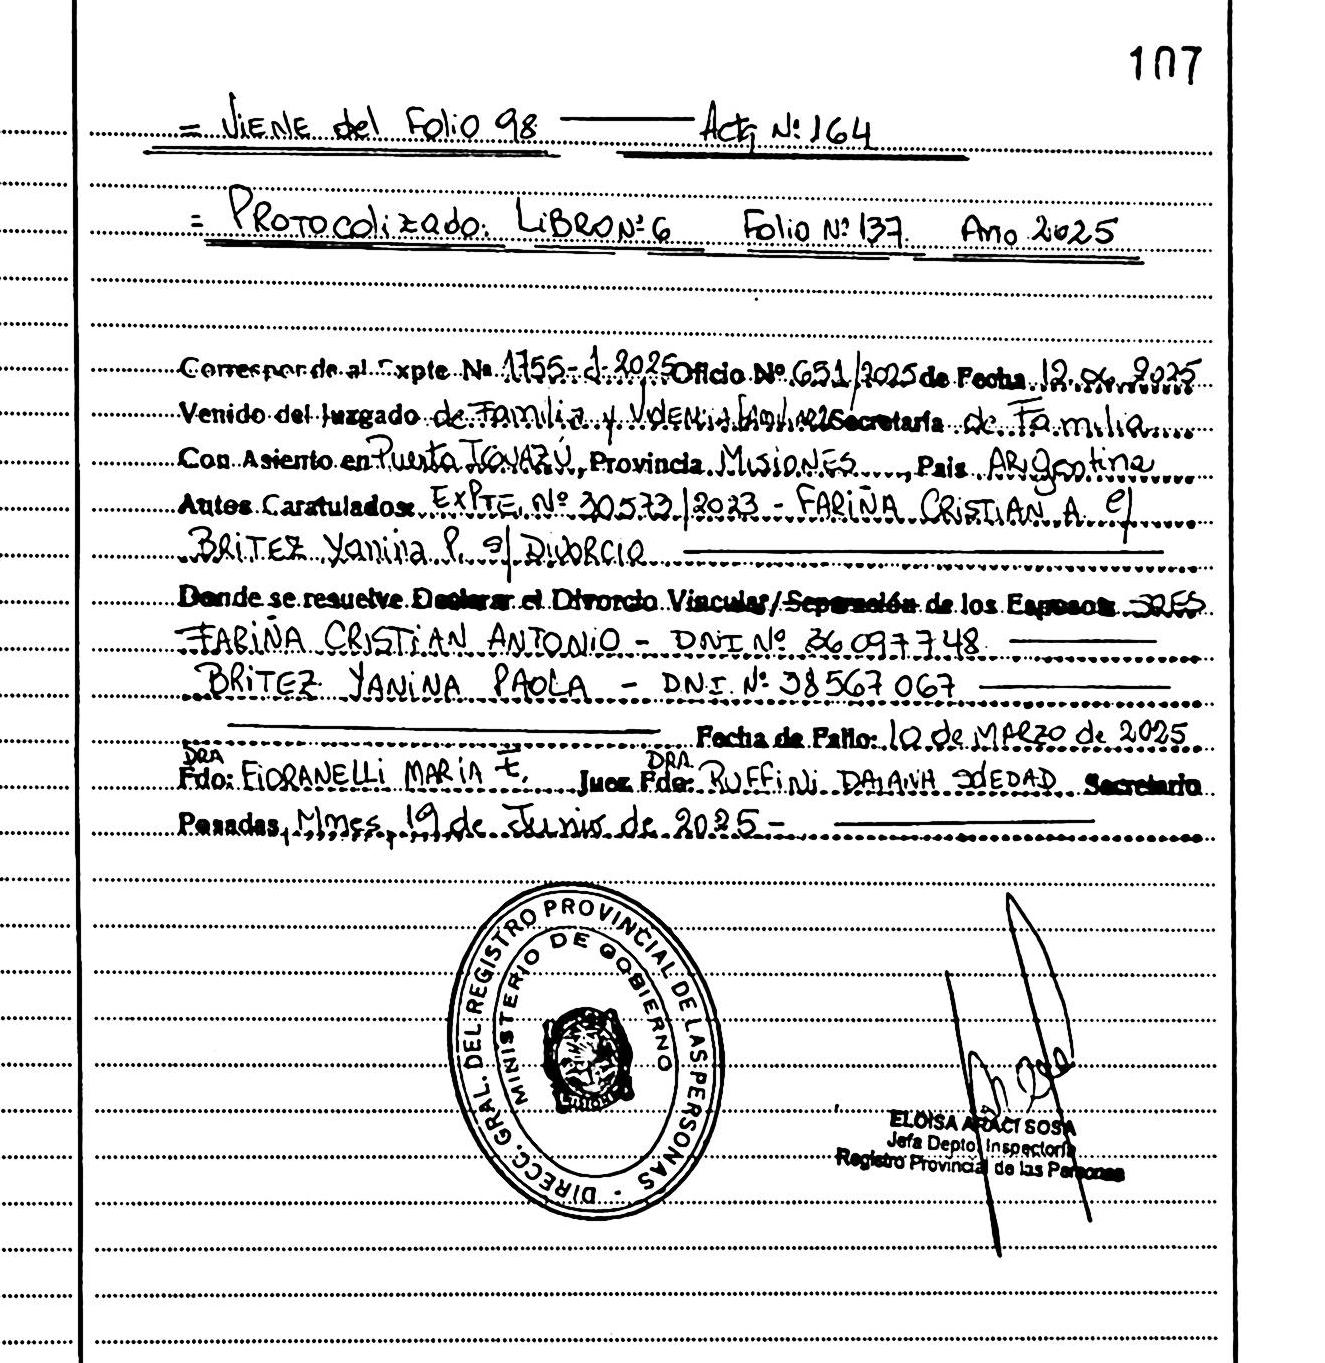 107
= Viene del Folio 98 —— Acta Nº 164
= Protocolizado: Libro Nº 6 Folio Nº 137. Año 2025
Corresponde al Expte Nº 1755-J-2025 Oficio Nº 651/2025 de Fecha 12.06.2025
Venido del Juzgado de Familia y Violencia Familiar Secretaría de Familia
Con Asiento en Puerto Iguazú, Provincia Misiones, Pais Argentina
Autos Caratulados: EXPTE. Nº 30573/2023 - FARIÑA CRISTIAN A. c/
BRITEZ Yanina P. s/ DIVORCIO
Donde se resuelve Declarar el Divorcio Vincular/Separación de los Esposos SRES
FARIÑA CRISTIAN ANTONIO - DNI Nº 36097748
BRITEZ YANINA PAOLA - D.N.I. Nº 38567067
Fecha de Fallo: 10 de MARZO de 2025
DRA DRA.
Fdo: FIORANELLI MARIA E. Juez Fdo: RUFFINI DAIANA SOLEDAD Secretario
Posadas, Mnes, 19 de Junio de 2025 -
DIRECC. GRAL. DEL REGISTRO PROVINCIAL DE LAS PERSONAS -
MINISTERIO DE GOBIERNO
ELOISA ARACI SOSA
Jefa Depto. Inspectoría
Registro Provincial de las Personas